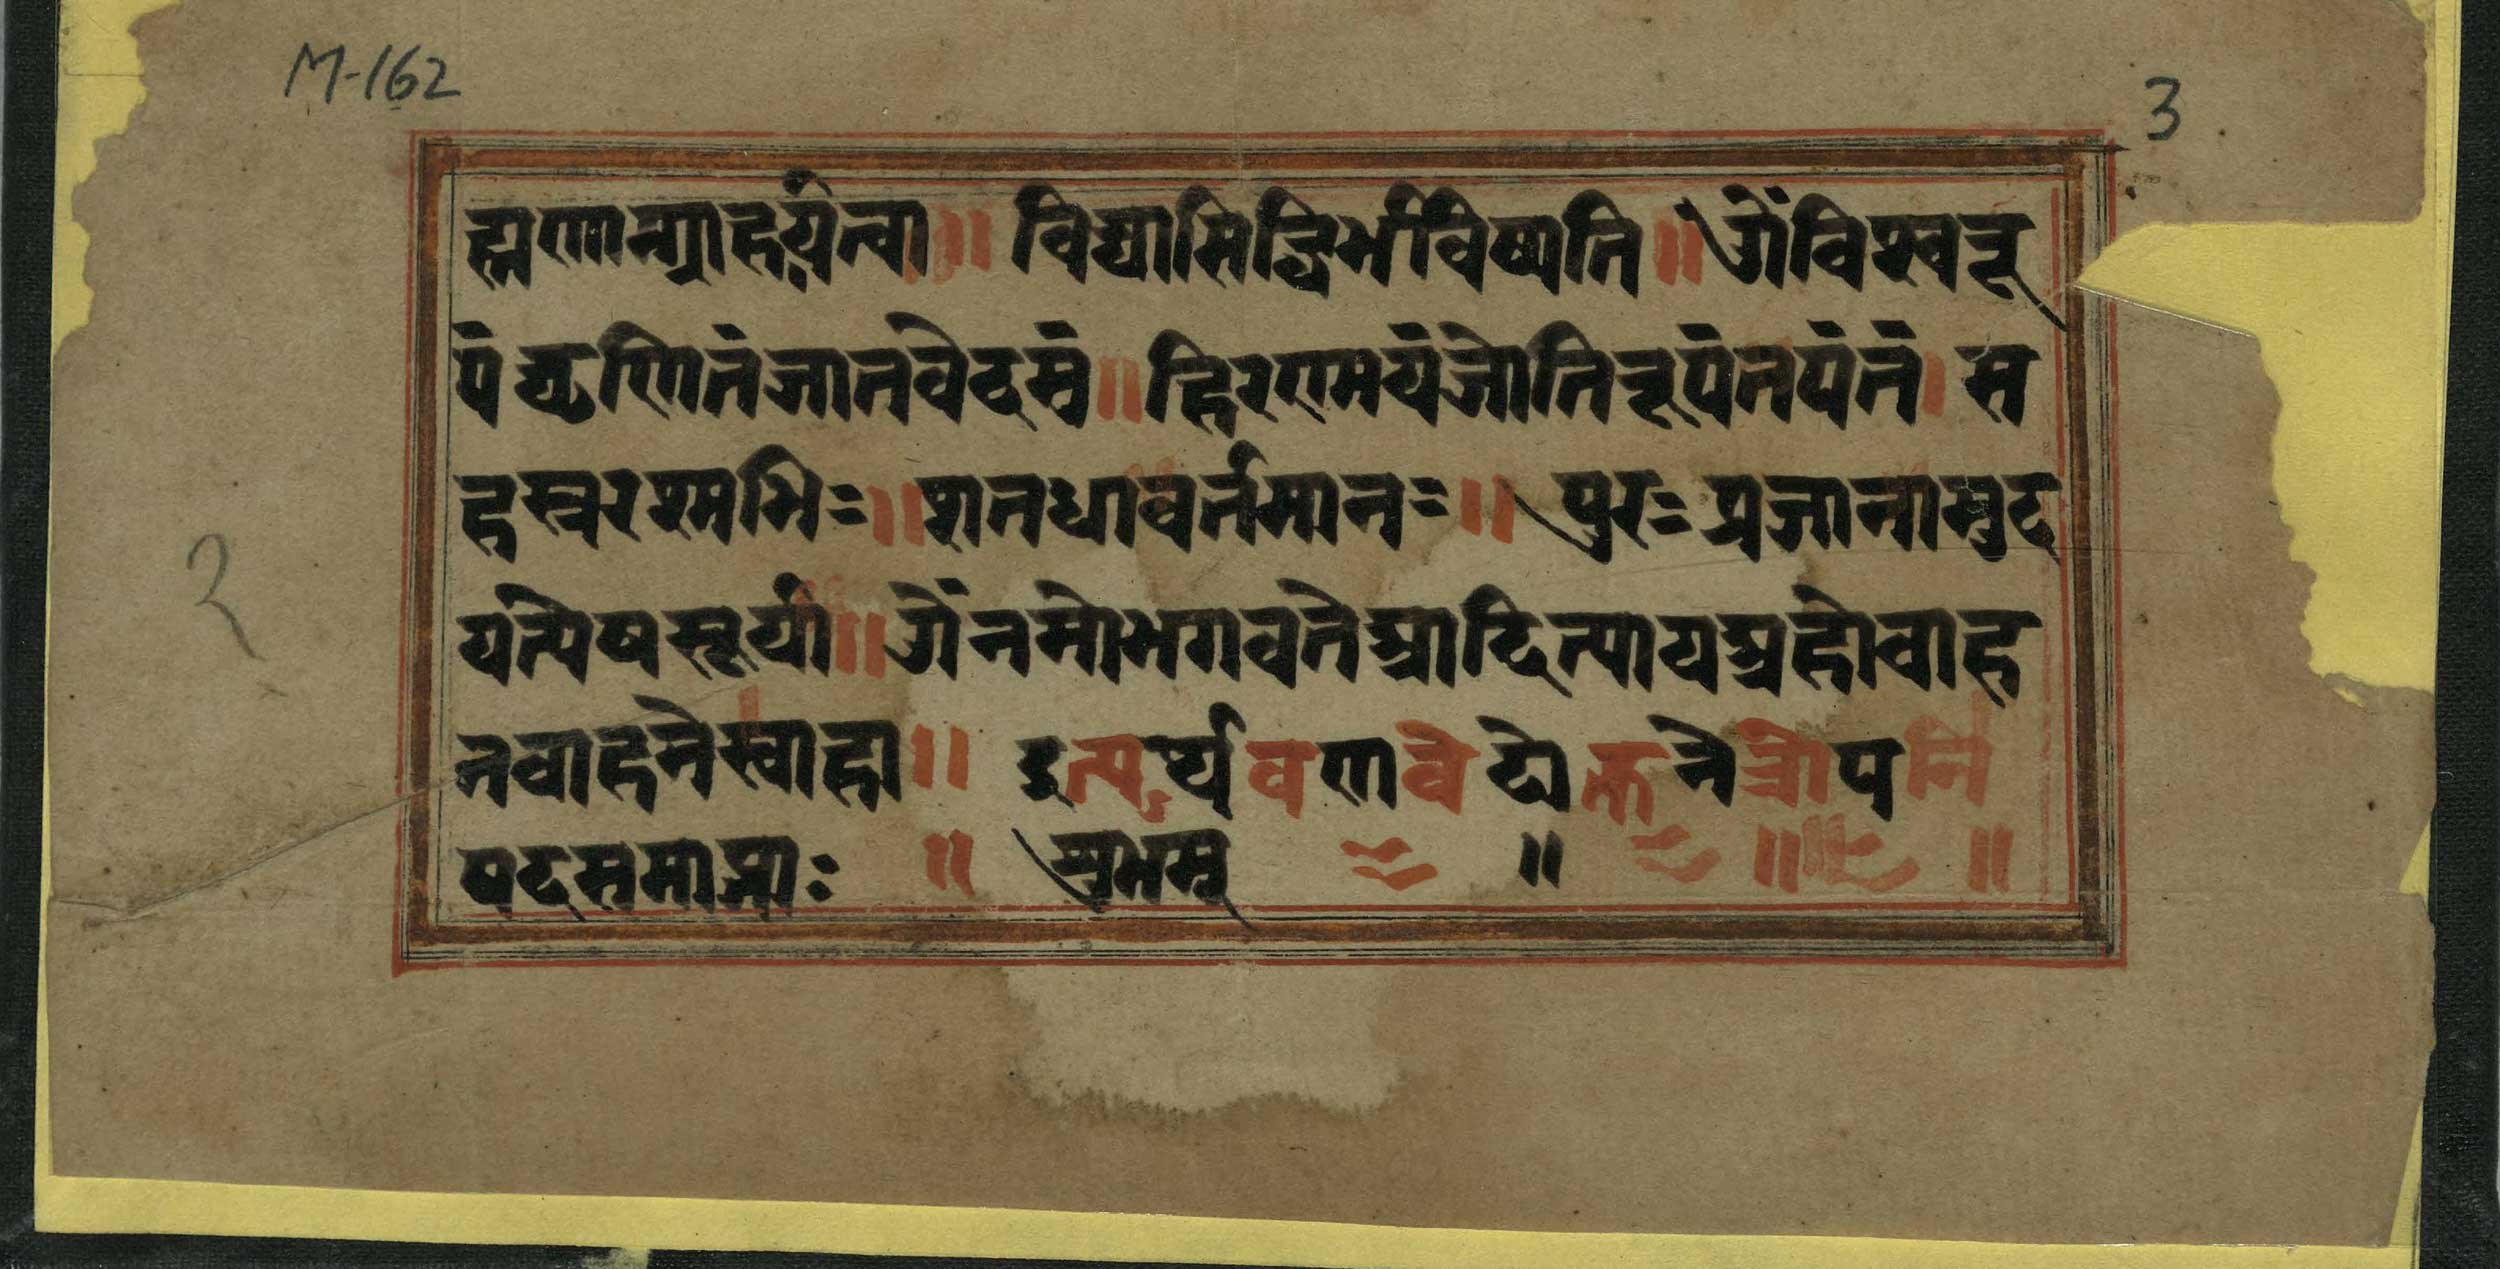 M-162
3
ह्मणान्ग्राहयेत्वा ॥ विद्यासिद्धिर्भविष्यति ॥ ॐविश्वरू
पं घृणितंजातवेदसं ॥ हिरण्मयंजोतिरूपंतपंतं । स
हस्त्ररश्मभिः ॥ शतधावर्तमानः ॥ पुरः प्रजानामुद
यत्येषसूर्यो ॥ ॐनमोभगवतेआदित्यायअहोवाह
२
नवाहनेस्वाहा ॥ इत्यर्थवणवेदोक्तनेत्रोपनि
षदसमाप्ताः ॥ शुभम् ॥ ॥ ॥